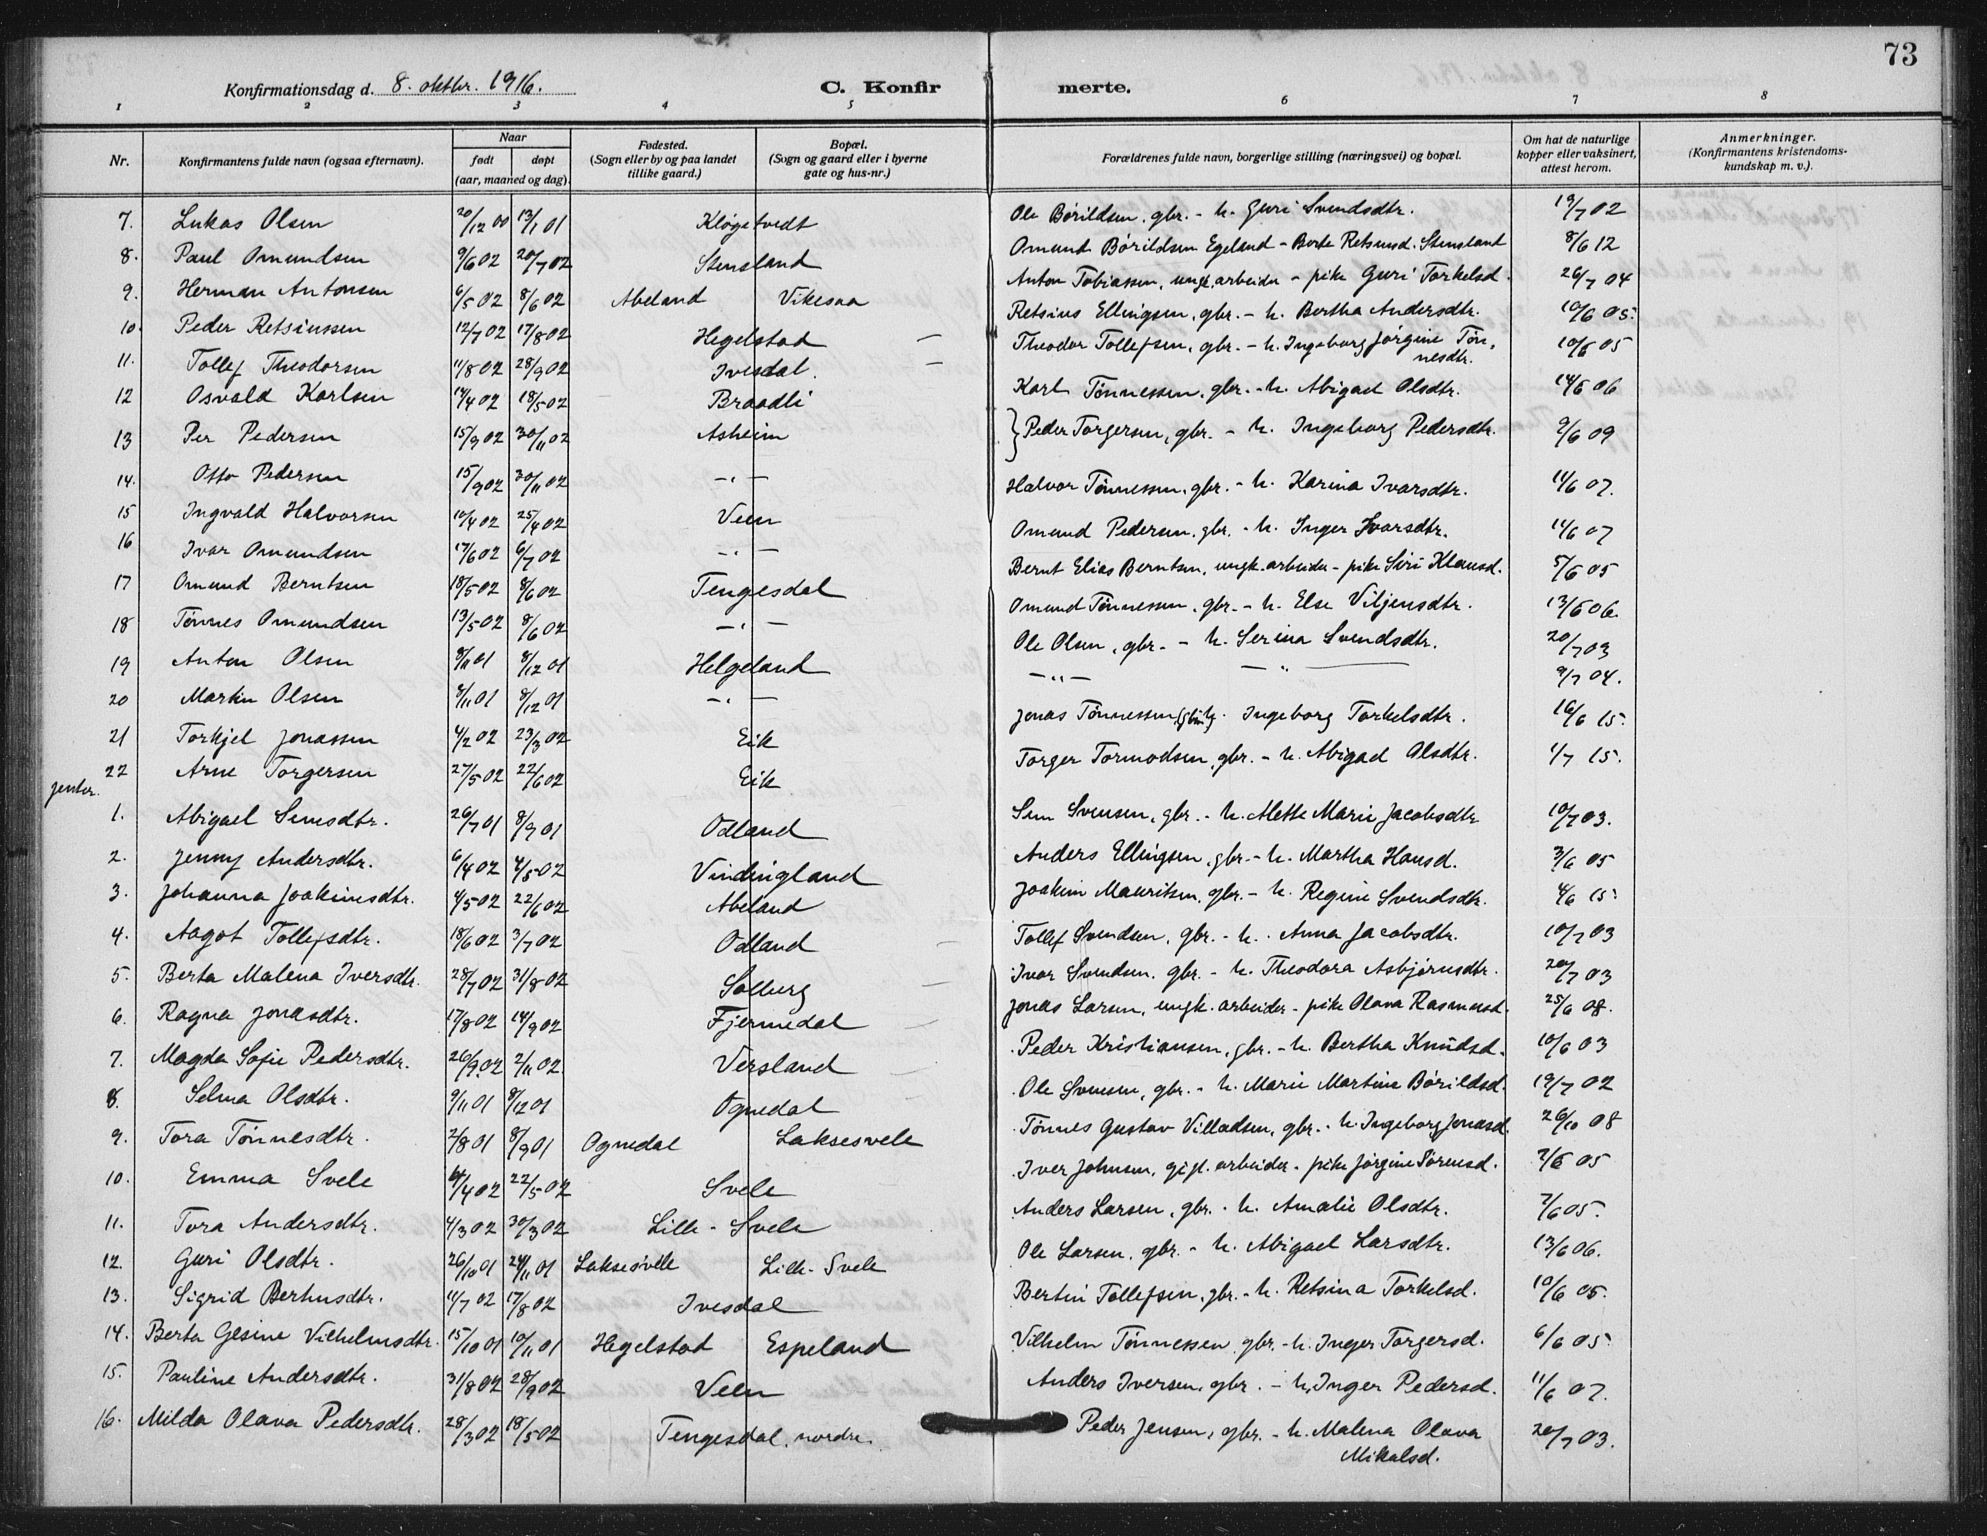 73
Konfirmationsdag d. 8. oktbr. 1916. C. Konfirmerte.
1 2 3 4 5 6 7 8
Nr. Konfirmantens fulde navn (ogsaa efternavn). Naar født døpt (aar, maaned og dag). Fødested. (Sogn eller by og paa landet tillike gaard.) Bopæl. (Sogn og gaard eller i byerne gate og hus-nr.) Forældrenes fulde navn, borgerlige stilling (næringsvei) og bopæl. Om hat de naturlige kopper eller vaksinert, attest herom. Anmerkninger. (Konfirmantens kristendomskundskap m. v.).
7. Lukas Olsen 20/12 00 13/1 01 Kløgetvedt Ole Børildsen, gbr. - h. Guri Svendsdtr. 19/7 02
8. Paul Omundsen 9/6 02 20/7 02 Stensland Omund Børildsen Egeland - Berte Retsiusd. Stensland 8/6 12
9. Herman Antonsen 6/5 02 8/6 02 Abeland Vikesaa Anton Tobiassen, ungk. arbeider - pike Guri Torkelsd. 26/7 04
10. Peder Retsiussen 12/7 02 17/8 02 Hegelstad Retsius Ellingsen, gbr. - h. Bertha Andersdtr. 10/6 05.
11. Tollef Theodorsen 11/8 02 28/9 02 Ivesdal. Theodor Tollefsen, gbr. - h. Ingeborg Jørgine Tønnesdtr. 10/6 05
12 Osvald Karlsen 14/4 02 18/5 02 Braadli Karl Tønnessen, gbr. - h. Abigael Olsdtr. 14/6 06
13 Per Pedersen 15/9 02 30/11 02 Asheim } Peder Torgersen, gbr. - h. Ingeborg Pedersdtr. 9/6 09
14. Otto Pedersen 15/9 02 30/11 02 - " -
15 Ingvald Halvorsen 10/4 02 25/4 02 Veen Halvor Tønnessen, gbr. - h. Karina Ivarsdtr. 11/6 07.
16 Ivar Omundsen 17/6 02 6/7 02 - " - Omund Pedersen, gbr. - h. Inger Ivarsdtr. 11/6 07
17 Omund Berntsen 18/5 02 8/6 02 Tengesdal Bernt Elias Berntsen, ungk. arbeider - pike Siri Klausd. 5/6 05
18 Tønnes Omundsen 13/5 02 8/6 02 - " - Omund Tønnessen, gbr. - h. Else Viljensdtr. 13/6 06.
19 Anton Olsen 8/11 01 8/12 01 Helgeland Ole Olsen, gbr. - h. Serina Svendsdtr. 20/7 03
20 Martin Olsen 8/11 01 8/12 01 - " - - " - - " - 9/7 04.
21 Torkjel Jonassen 4/2 02 23/3 02 Eik Jonas Tønnessen, h. Ingeborg Torkelsdtr. 16/6 15.
22 Arne Torgersen 27/5 02 22/6 02 Eik Torger Tormodsen, gbr. - h. Abigael Olsdtr. 1/7 15.
jenter.
1. Abigael Simsdtr. 26/7 01 8/9 01 Odland Sem Svensen, gbr. - h. Alette Marie Jacobsdtr 10/7 03.
2. Jenny Andersdtr. 6/4 02 4/5 02 Vindingland Anders Ellingsen, gbr. - h. Martha Hansd. 3/6 05
3. Johanna Joakimsdtr. 4/5 02 22/6 02 Abeland Joakim Mauritsen, gbr. - h. Regine Svendsdtr. 4/6 15.
4. Aagot Tollefsdtr. 18/6 02 3/7 02 Odland Tollef Svendsen, gbr. - h. Anna Jacobsdtr. 10/7 03
5. Berta Malena Iversdtr. 28/7 02 31/8 02 Solberg Ivar Svendsen, gbr. - h. Theodora Asbjørnsdtr. 20/7 03
6. Ragna Jonasdtr. 17/8 02 14/9 02 Fjermedal Jonas Larsen, ungk. arbeider - pike Olava Rasmusd. 25/6 08.
7. Magda Sofie Pedersdtr. 26/9 02 2/11 02 Versland Peder Kristiansen, gbr. - h. Bertha Knudsd. 10/6 03
8. Selma Olsdtr. 9/11 01 8/12 01 Ognedal Ole Svensen, gbr. - h. Marie Martine Børildsd. 19/7 02
9. Tora Tønnesdtr. 2/8 01 8/9 01 Ognedal Laksesvele Tønnes Gustav Villadsen, gbr. - h. Ingeborg Jonasd. 26/10 08
10. Emma Svele 4/02 22/5 02 Svele Iver Johnsen, gift. arbeider - pike Jørgine Sørensd. 2/6 05
11. Tora Andersdtr. 4/3 02 30/3 02 Lille-Svele Anders Larsen, gbr. - h. Amalie Olsdtr. 7/6 05.
12. Guri Olsdtr. 26/10 01 24/11 01 Laksesvele Lille-Svele Ole Larsen, gbr. - h. Abigael Larsdtr. 13/6 06.
13. Sigrid Berhusdtr. 11/7 02 17/8 02 Ivesdal Bertin Tollefsen, gbr. - h. Retsina Torkelsd. 10/6 05.
14. Berta Gesine Vilhelmsdtr. 15/10 01 10/11 01 Hegelstad Espeland Vilhelm Tønnessen gbr. - h. Inger Torgersd. 6/6 05.
15. Pauline Andersdtr. 31/8 02 28/9 02 Veen Anders Iversen, gbr. - h. Inger Pedersd. 11/6 07.
16. Milda Olava Pedersdtr. 28/3 02 18/5 02 Tengesdal, nordre. Peder Jensen, gbr. - h. Malena Olava Mikalsd. 20/7 03.